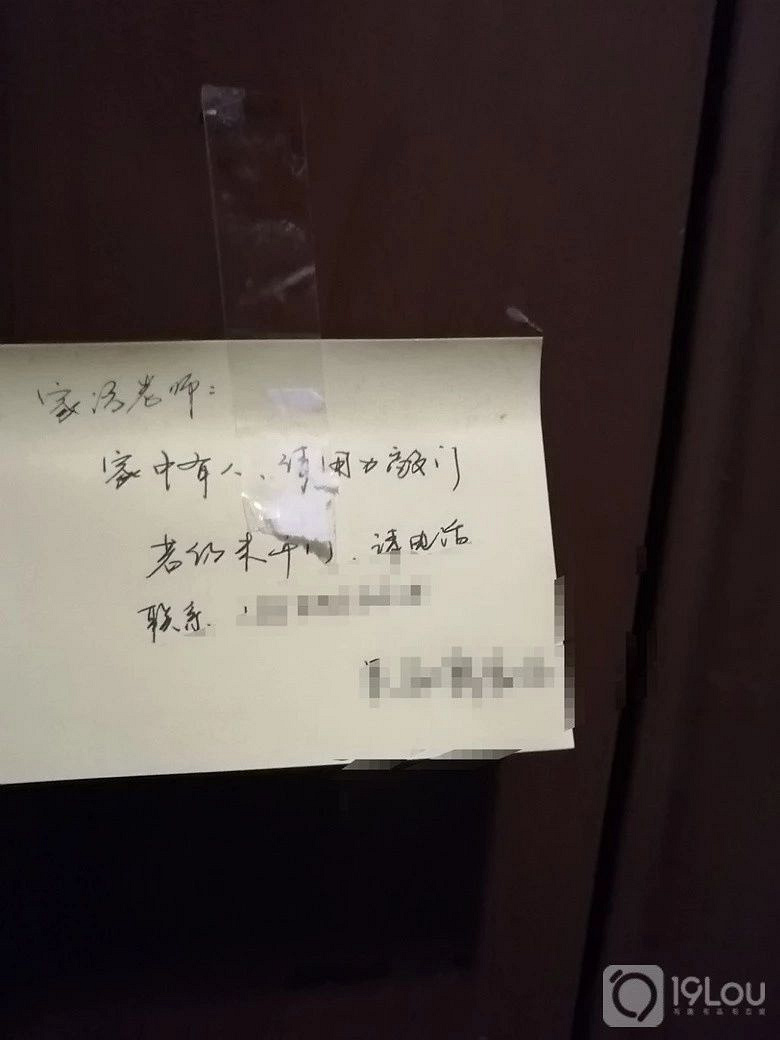 家访老师:
家中有人、请用力敲门
若仍未开门、请电话
联系:
19Lou